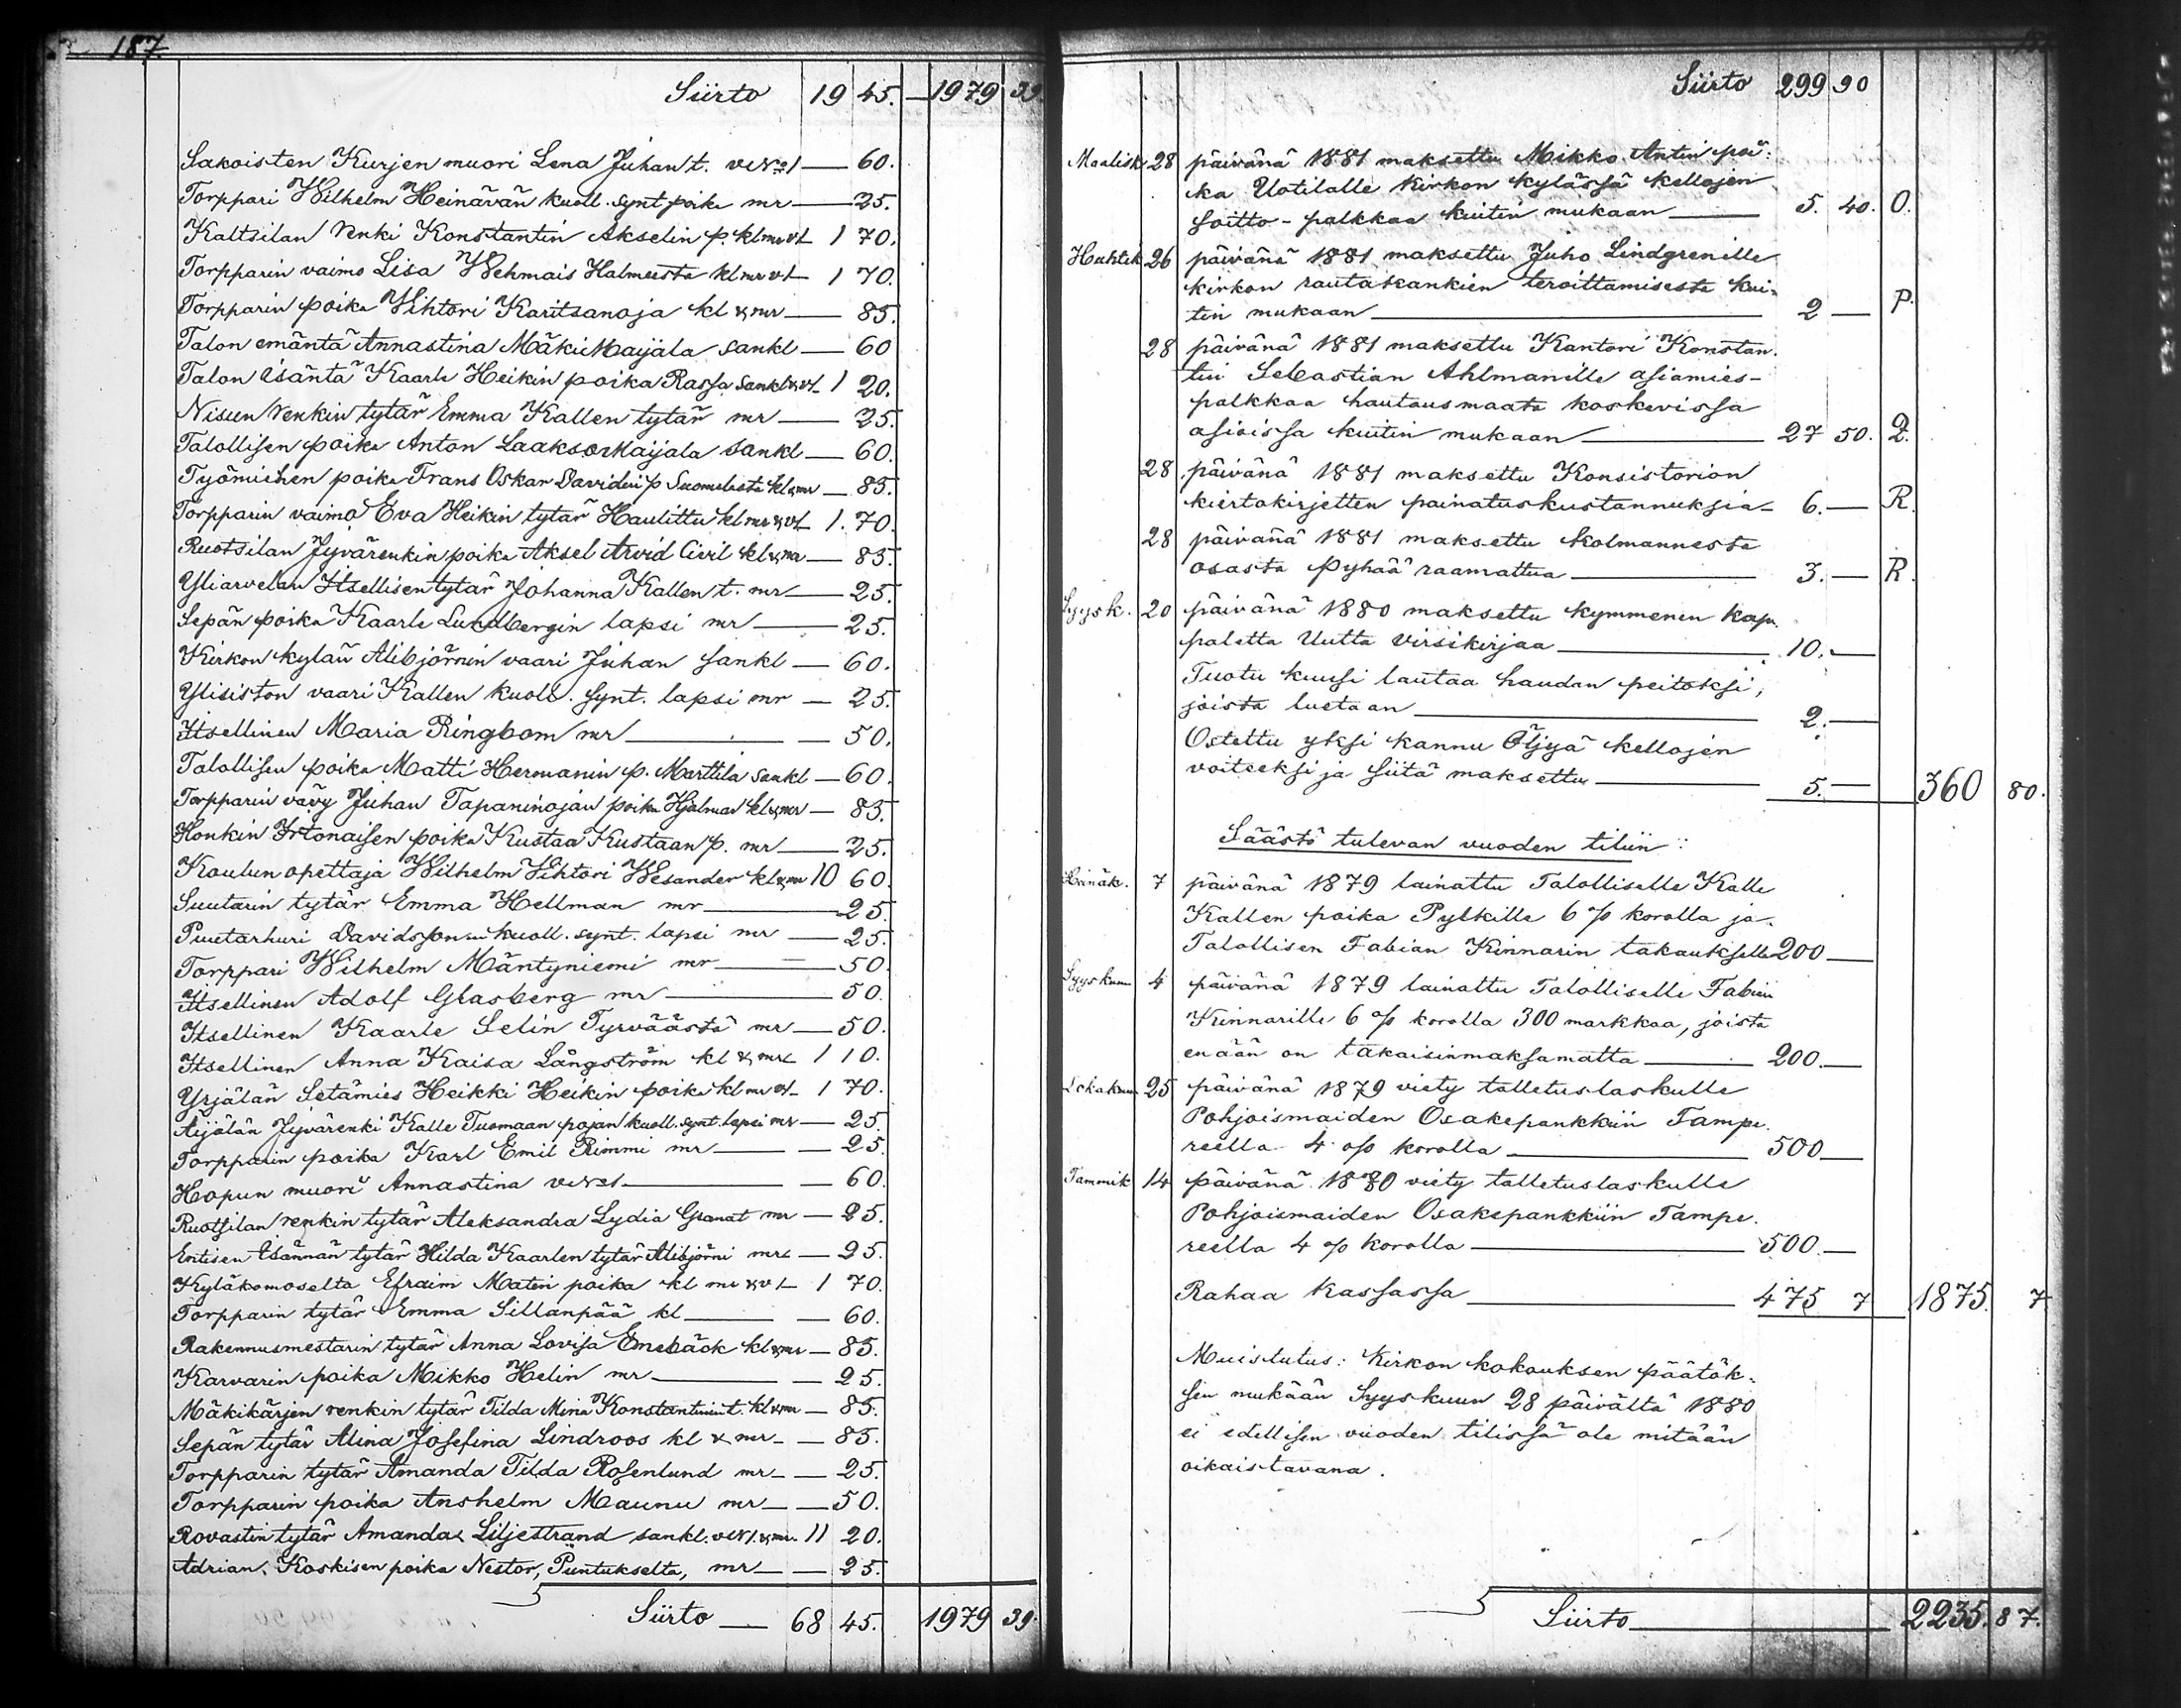 187.
Siirto 19 45. — 1979 39.
Sakoisten Kurjen muori Lena Juhan t. — 60.
Torppari Wilhelm Heinävän kuoll. synt poika mr — 25.
Kaltsilan renki Konstantin Akselin p. kl mr vl 1 70.
Torpparin vaimo Lisa Wehmais Halmeesta kl mr vl 1 70.
Torpparin poika Wihtori Karitsanoja kl & mr — 85.
Talon emäntä Annastina MäkiMaijala sankl — 60
Talon Isäntä Kaarle Heikin poika Rassa sankl & vl 1 20.
Nisun renkin tytär Emma Kallen tytär mr — 25.
Talollisen poika Anton LaaksoMaijala sankl — 60.
Työmiehen poika Frans Oskar Davidin p Suomelasta kl & mr — 85.
Torpparin vaimo Eva Heikin tytär Haulittu kl mr & vl 1. 70.
Ruotsilan Jyvärenkin poika Aksel Arvid Civil kl & mr — 85.
Yliarvelan Itsellisen tytär Johanna Kallen t. mr — 25.
Sepän poika Kaarle Lundbergin lapsi mr — 25.
Kirkon kylän Alibjörnin vaari Juhan sankl — 60.
Ylisiston vaari Kallen kuoll. synt. lapsi mr — 25.
Itsellinen Maria Ringbom mr — 50.
Talollisen poika Matti Hermanin p. Marttila sankl — 60.
Torpparin vävy Juhan Tapaninojan poika Hjalmar kl & mr — 85.
Honkin Irtonaisen poika Kustaa Kustaan p. mr — 25.
Koulun opettaja Wilhelm Wihtori Wesander kl & mr 10 60.
Suutarin tytär Emma Hellman mr — 25.
Puutarhuri Davidssonin kuoll. synt. lapsi mr — 25.
Torppari Wilhelm Mäntyniemi mr — 50.
Itsellinen Adolf Glasberg mr — 50.
Itsellinen Kaarle Selin Tyrväästä mr — 50.
Itsellinen Anna Kaisa Långström kl & mr 1 10.
Yrjälän Setämies Heikki Heikin poika kl mr vl 1 70.
Äijälän Jyvärenki Kalle Tuomaan pojan kuoll. synt. lapsi mr — 25.
Torpparin poika Karl Emil Rimmi mr — 25.
Hopun muori Annastina — 60.
Ruotsilan renkin tytär Aleksandra Lydia Granat mr — 25.
Entisen Isännän tytär Hilda Kaarlen tytär Alibjörni mr — 25.
Kyläkomoselta Efraim Matin poika kl mr & vl 1 70.
Torpparin tytär Emma Sillanpää kl — 60.
Rakennusmestarin tytär Anna Lovisa Enebäck kl & mr — 85.
Karvarin poika Mikko Helin mr — 25.
Mäkikärjen renkin tytär Tilda Mina Konstantinin t. kl & mr — 85.
Sepän tytär Alina Josefina Lindroos kl & mr — 85.
Torpparin tytär Amanda Tilda Rosenlund mr — 25.
Torpparin poika Anshelm Maunu mr — 50.
Rovastin tytär Amanda Liljestrand sankl. & mr. 11 20.
Adrian Koskisen poika Nestor, Puntukselta, mr — 25.
Siirto — 68 45. 1979 39.
Siirto 299 90
Maalisk 28 päivänä 1881 maksettu Mikko Antin poi:
ka Uotilalle Kirkon kylässä kellojen
soitto-palkkaa kuitin mukaan — 5. 40. O.
Huhtik 26 päivänä 1881 maksettu Juho Lindgrenille
kirkon rautakankien teroittamisesta kui-
tin mukaan — 2 — P.
28 päivänä 1881 maksettu Kantori Konstan-
tin Sebastian Ahlmanille asiamies-
palkkaa hautausmaata koskevissa
asioissa kuitin mukaan — 27 50. Q.
28 päivänä 1881 maksettu Konsistorion
kiertokirjetten painatuskustannuksia — 6. — R.
28 päivänä 1881 maksettu kolmannesta
osasta Pyhää raamattua — 3. — R.
Syysk. 20 päivänä 1880 maksettu kymmenen kap-
paletta Uutta virsikirjaa — 10. —
Tuotu kuusi lautaa haudan peitoksi,
joista luetaan — 2. —
Ostettu yksi kannu Öljyä kellojen
voiteeksi ja siitä maksettu — 5. — 360 80.
Säästö tulevan vuoden tiliin:
Heinäk. 7 päivänä 1879 lainattu Talolliselle Kalle
Kallen poika Pylkille 6 % korolla ja
Talollisen Fabian Kinnarin takauksella 200 —
Syyskuun 4 päivänä 1879 lainattu Talolliselle Fabian
Kinnarille 6 % korolla 300 markkaa, joista
enään on takaisinmaksamatta — 200. —
Lokakuun 25 päivänä 1879 viety talletuslaskulle
Pohjoismaiden Osakepankkiin Tampe-
reella 4 o/o korolla — 500 —
Tammik 14 päivänä 1880 viety talletuslaskulle
Pohjoismaiden Osakepankkiin Tampe-
reella 4 % korolla — 500. —
Rahaa Kassassa — 475 7 1875. 7
Muistutus: Kirkon kokouksen päätök-
sen mukään Syyskuun 28 päivältä 1880
ei edellisen vuoden tilissä ole mitään
oikaistavana.
Siirto — 2235. 87.